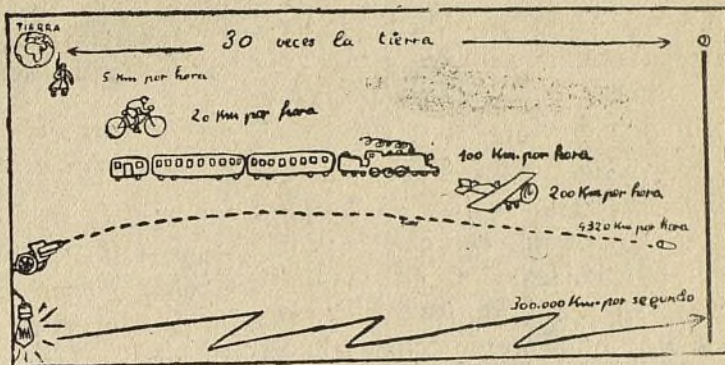 TIERRA
30 veces la tierra
5 Km por hora
20 Km por hora
100 Km. por hora
200 Km por hora
4320 Km por hora
300.000 Km. por segundo